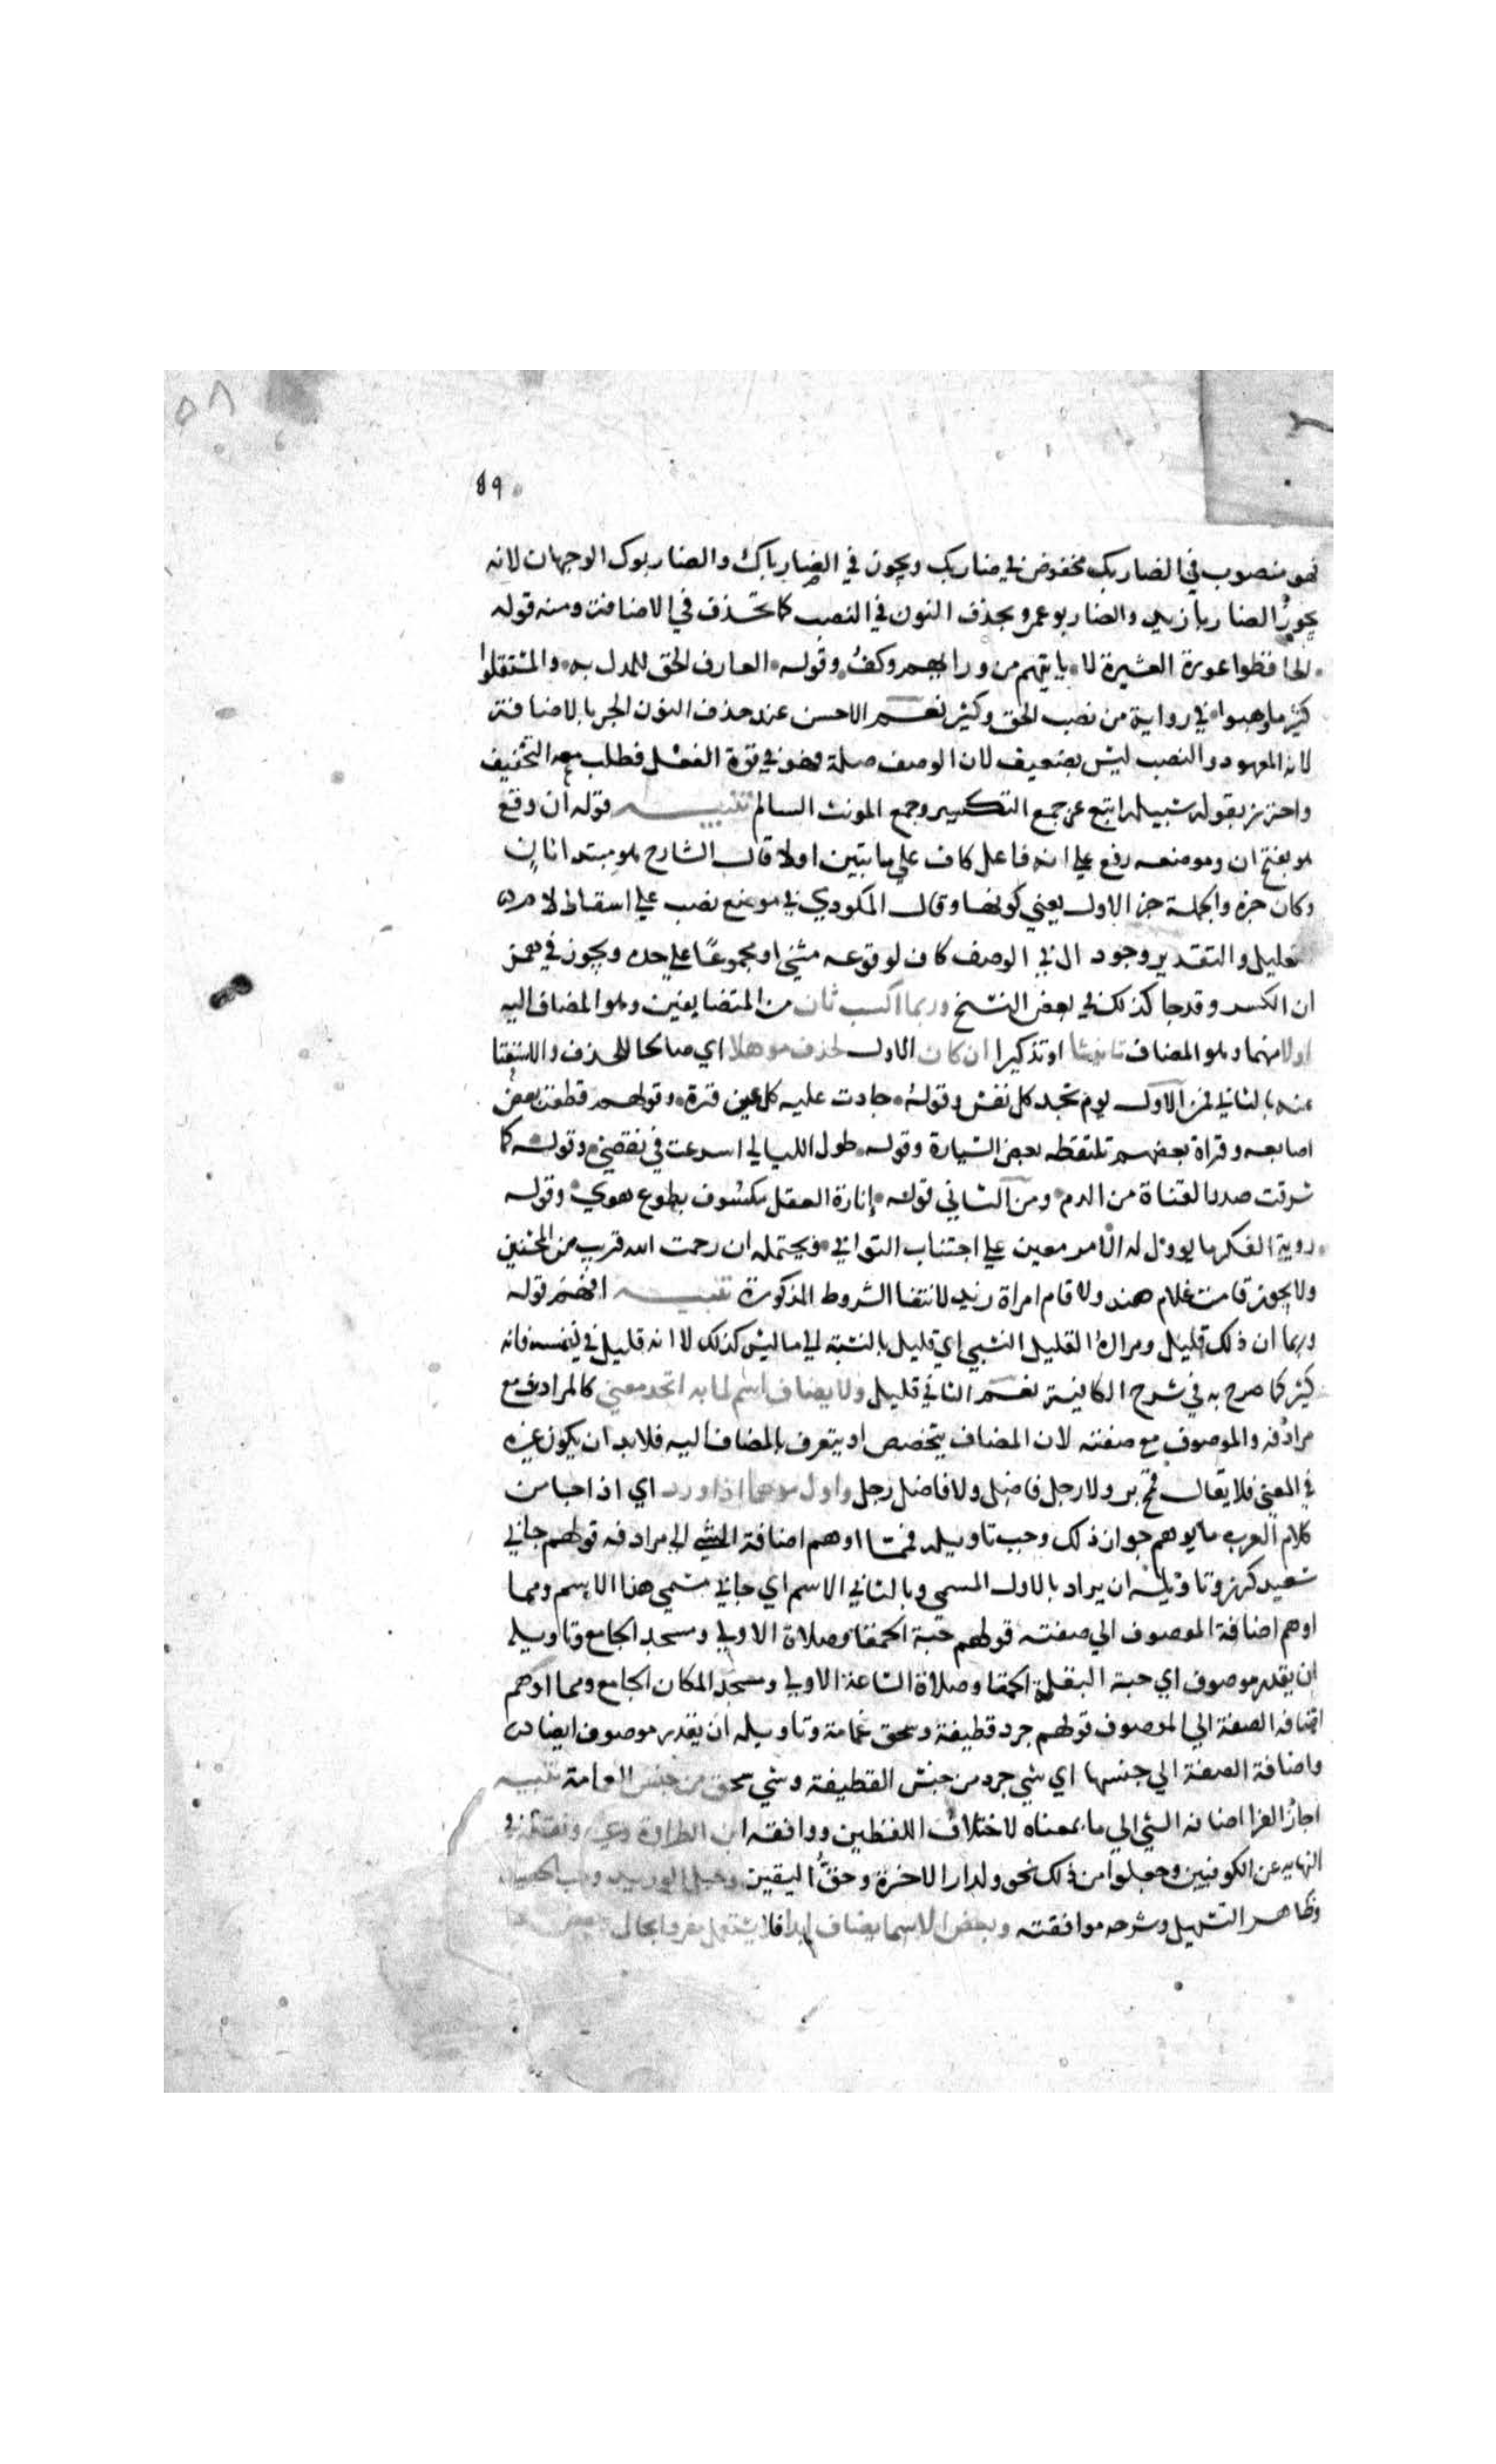 ٥٨
٨٩
فهو منصوب في الضاربك مخفوض في ضاربك ويجوز في الضارباك والضاربوك الوجهان لانه
يجوز الضاربا زيد والضاربو عمرو بحذف النون في النصب كما تحذف في الاضافة ومنه قوله
الحافظوا عورة العشيرة لا ياتيهم من ورايهم وكف وقوله العارف الحق للمدل به والمستقلوا
كثير ما وهبوا في رواية من نصب الحق وكثير نعم الاحسن عند حذف النون الجر بالاضافة
لانه المعهود والنصب ليس بضعيف لان الوصف صلة فهو في قوة الفعل فطلب معه التخفيف
واحترز بقوله سبيله اتبع عن جمع التكسير وجمع المونث السالم تنبيه قوله ان وقع
هو بفتح ان وموضعه رفع على انه فاعل كاف على ما تبين اولا قال الشارح هو مبتدا ثان
وكاف خبره والجملة خبر الاول يعني كونها وقال المكودي في موضع نصب على اسقاط لام
تعليل والتقدير وجود ال في الوصف كاف لوقوعه مثنى او مجموعا على حده ويجوز في همز
ان الكسر وقد جا كذلك في بعض النسخ وربما اكسب ثان من المتضايفين وهو المضاف اليه
اولا منهما وهو المضاف تانيثا او تذكيرا ان كان الاول لحذف موهلا اي صالحا للحذف والاستغنا
عنه بالثاني فمن الاول يوم تجد كل نفس وقوله جادت عليه كل عين ثرة وقولهم قطعت بعض
اصابعه وقراة بعضهم تلتقطه بعض السيارة وقوله طول الليالي اسرعت في نقضي وقوله كما
شرقت صدر القناة من الدم ومن الثاني قوله إنارة العقل مكسوف بطوع هوي وقوله
روية الفكر ما يوول له الامر معين على اجتناب التواني ويحتمله ان رحمت الله قريب من المحسنين
ولا يجوز قامت غلام هند ولا قام امراة زيد لانتفا الشروط المذكورة تنبيه افهم قوله
وربما ان ذلك قليل ومراده القليل النسبي اي قليل بالنسبة الي ما ليس كذلك لا انه قليل في نفسه فانه
كثير كما صرح به في شرح الكافية نعم الثاني قليل ولا يضاف اسم لما به اتحد معني كالمرادف مع
مرادفه والموصوف مع صفته لان المضاف يتخصص او يتعرف بالمضاف اليه فلابد ان يكون غيره
في المعني فلا يقال قمح بر ولا رجل فاضل ولا فاضل رجل واول موهما اذا ورد اي اذا جا من
كلام العرب ما يوهم جواز ذلك وجب تاويله فمما اوهم اضافة الشي الي مرادفه قولهم جاني
سعيد كرز وتاويله ان يراد بالاول المسمي وبالثاني الاسم اي جاني مسمي هذا الاسم ومما
اوهم اضافة الموصوف الي صفته قولهم حبة الحمقا وصلاة الاولي ومسجد الجامع وتاويله
ان يقدر موصوف اي حبة البقلة الحمقا وصلاة الساعة الاولي ومسجد المكان الجامع ومما اوهم
اضافة الصفة الي الموصوف قولهم جرد قطيفة وسحق عمامة وتاويله ان يقدر موصوف ايضا
واضافة الصفة الي جنسها اي شي جرد من جنس القطيفة وشي سحق من جنس العمامة تنبيه
اجاز الفرا اضافة الشي الي ما بمعناه لاختلاف اللفظين ووافقه ابن الطراوة وغيره ونقله في
النهاية عن الكوفيين وجعلوا من ذلك نحو ولدار الاخرة وحق اليقين وحبل الوريد وحب الحصيد
وظاهر التسهيل وشرحه موافقته وبعض الاسما يضاف ابدا فلا يستعمل مفردا بحال